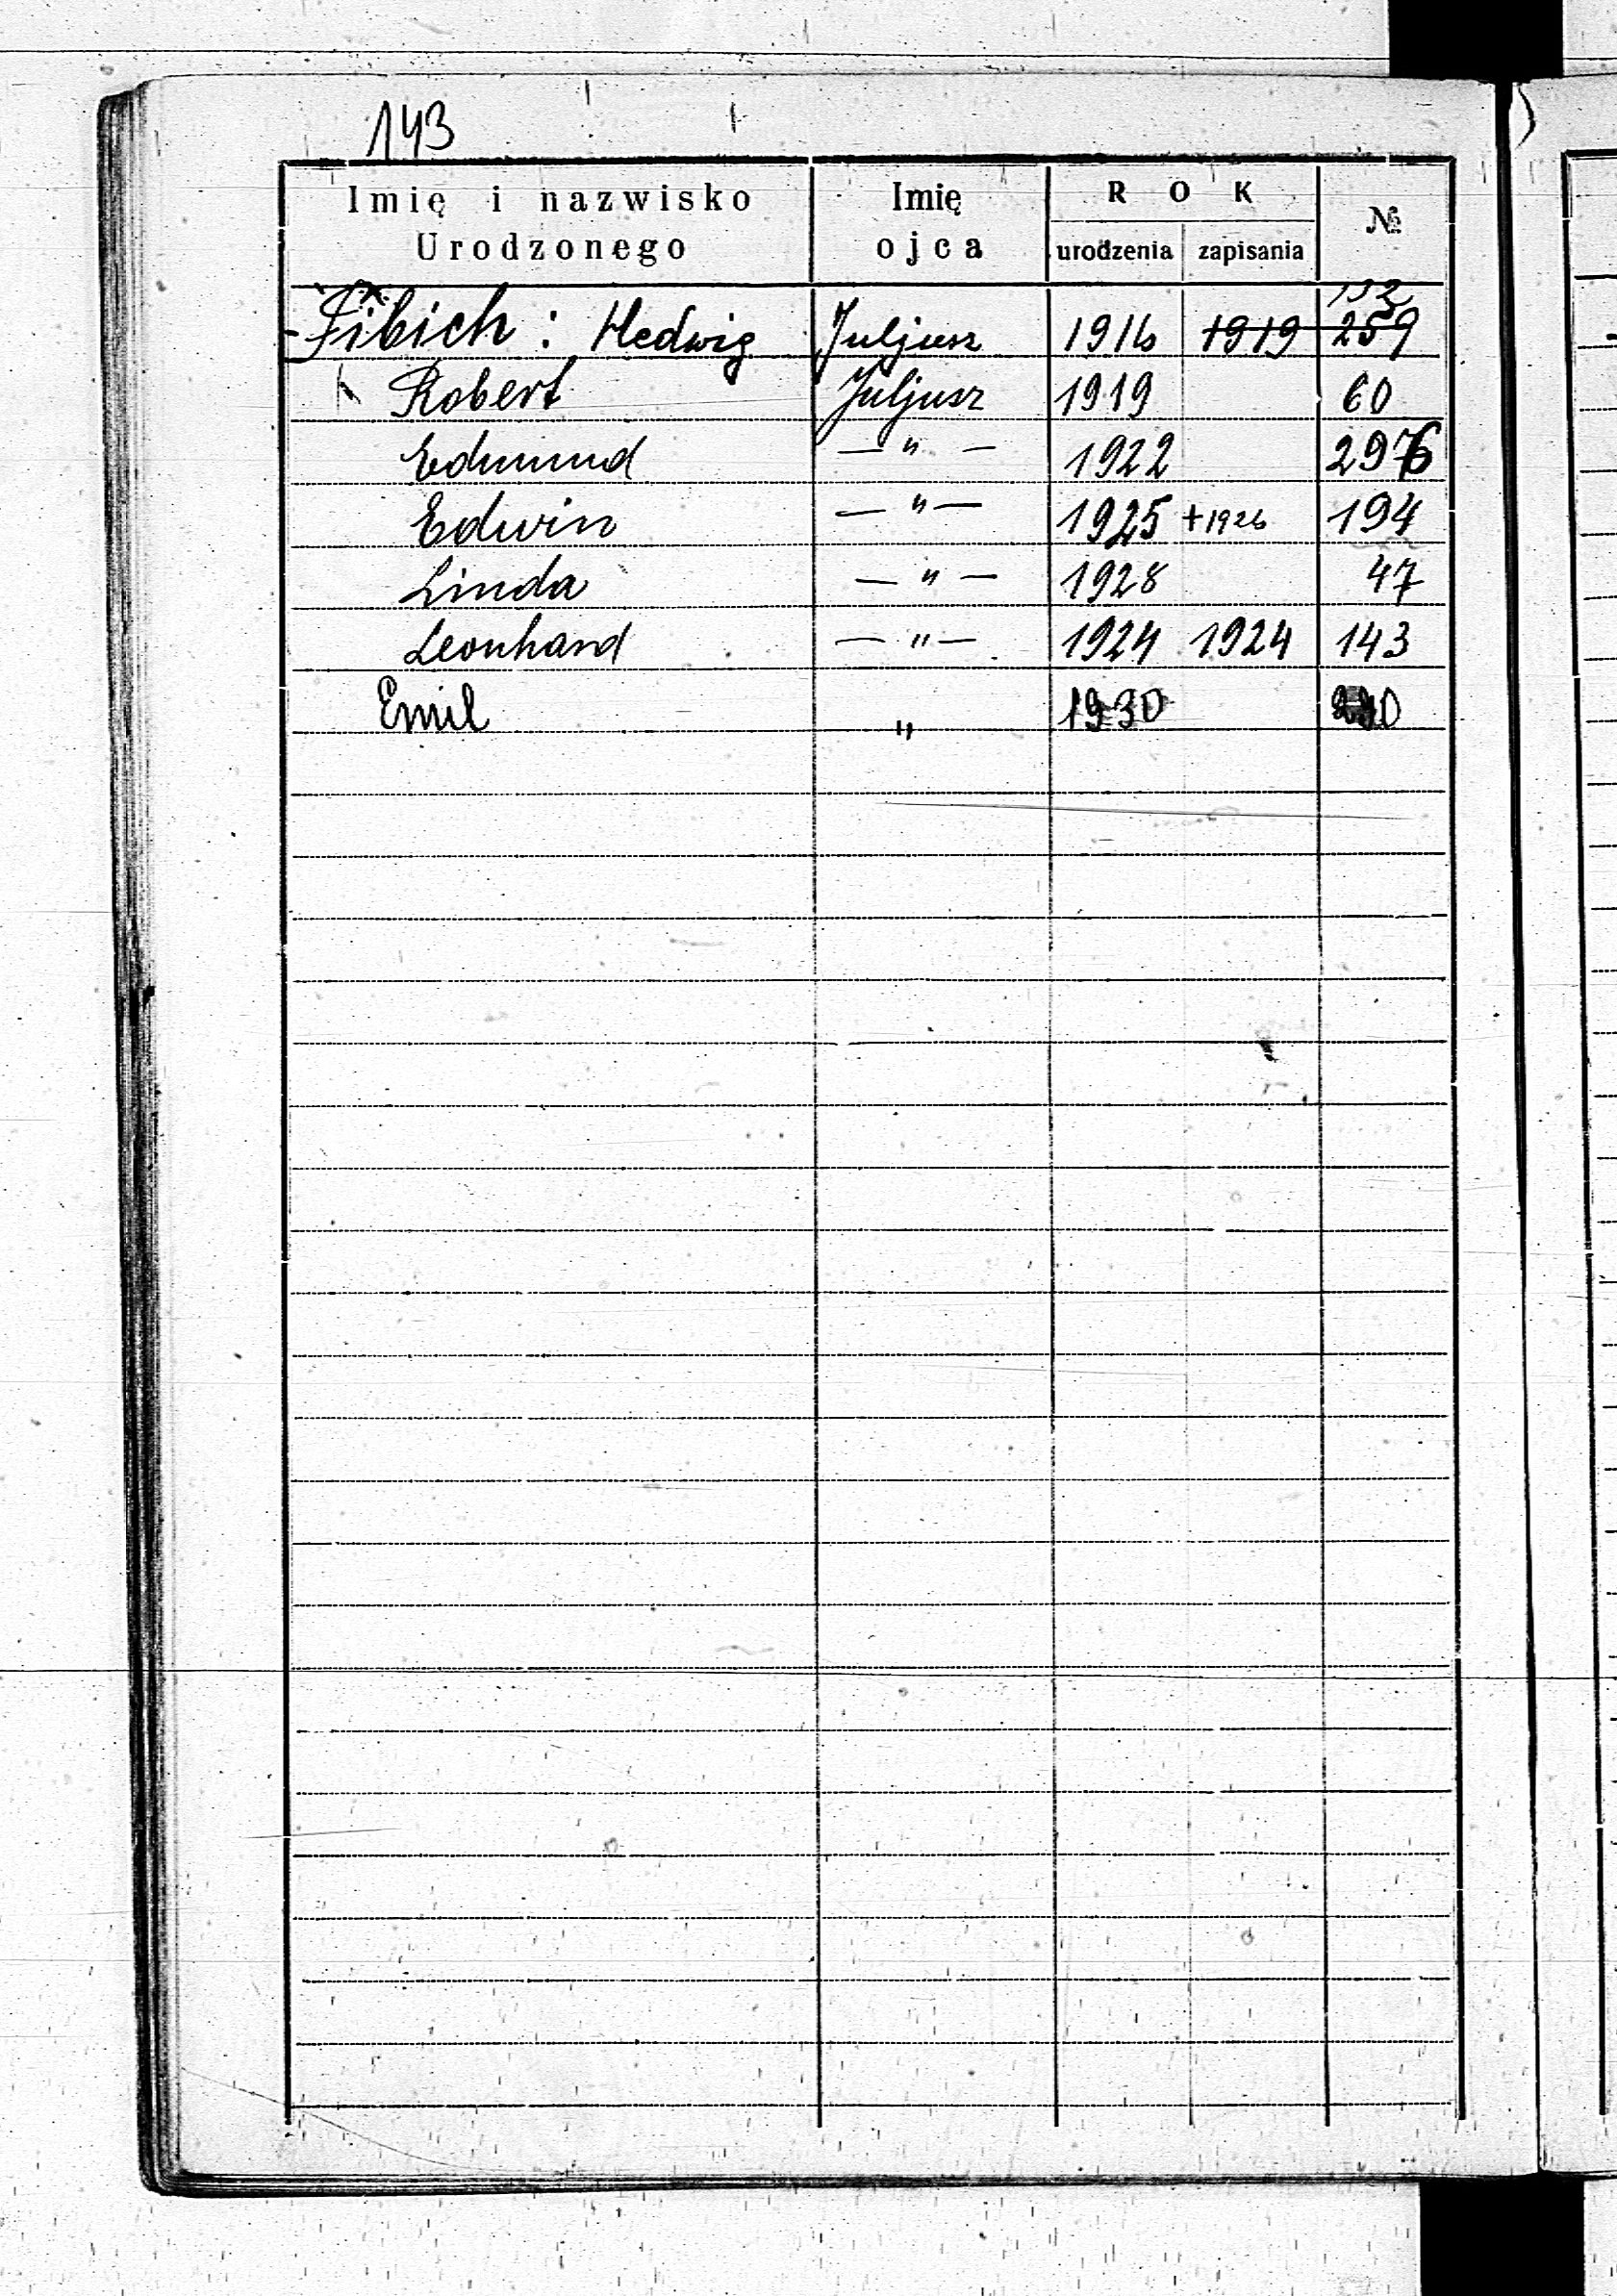 143
Imię i nazwisko Urodzonego Imię ojca ROK urodzenia zapisania №
Fibich: Hedwig Juljusz 1916 1919 259
Robert Juljusz 1919 60
Edmund — " — 1922 2976
Edwin — " — 1925 +1926 194
Linda — " — 1928 47
Leonhard — " — 1924 1924 143
Emil " 1930